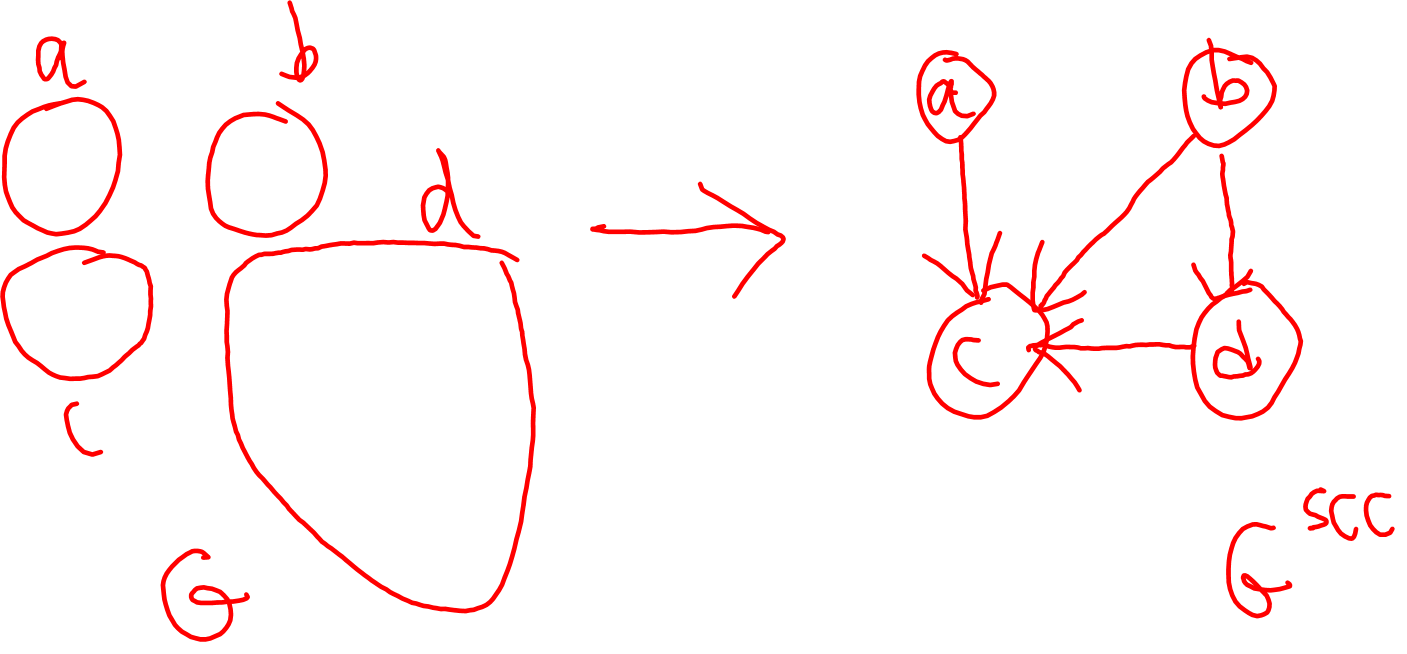 a b
d
c
G
a b
c d
G^SCC